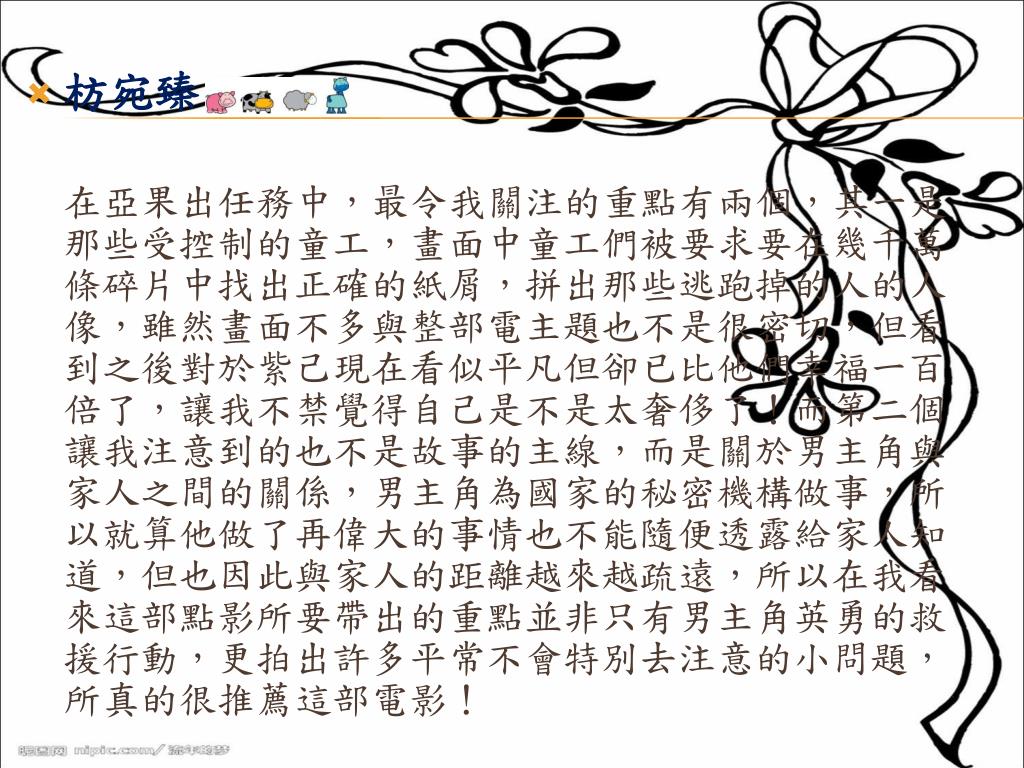 枋宛臻
在亞果出任務中，最令我關注的重點有兩個，其一是
那些受控制的童工，畫面中童工們被要求要在幾千萬
條碎片中找出正確的紙屑，拼出那些逃跑掉的人的人
像，雖然畫面不多與整部電主題也不是很密切，但看
到之後對於紫己現在看似平凡但卻已比他們幸福一百
倍了，讓我不禁覺得自己是不是太奢侈了！而第二個
讓我注意到的也不是故事的主線，而是關於男主角與
家人之間的關係，男主角為國家的秘密機構做事，所
以就算他做了再偉大的事情也不能隨便透露給家人知
道，但也因此與家人的距離越來越疏遠，所以在我看
來這部點影所要帶出的重點並非只有男主角英勇的救
援行動，更拍出許多平常不會特別去注意的小問題，
所真的很推薦這部電影！
昵图网 nipic.com/ 流年的梦